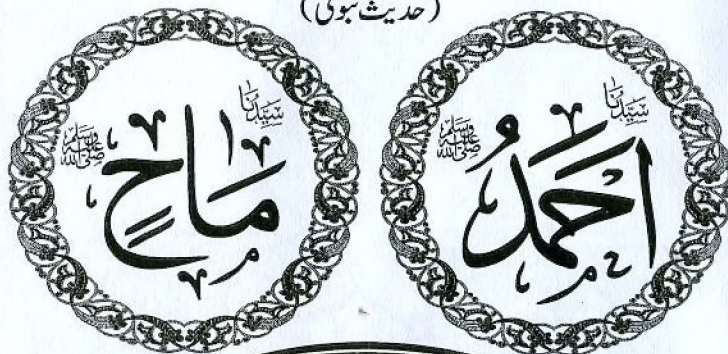 (حدیث نبوی)
سَيِّدُنَا
اَحْمَدُ
صلى الله عليه وسلم
سَيِّدُنَا
مَاحٍ
صلى الله عليه وسلم